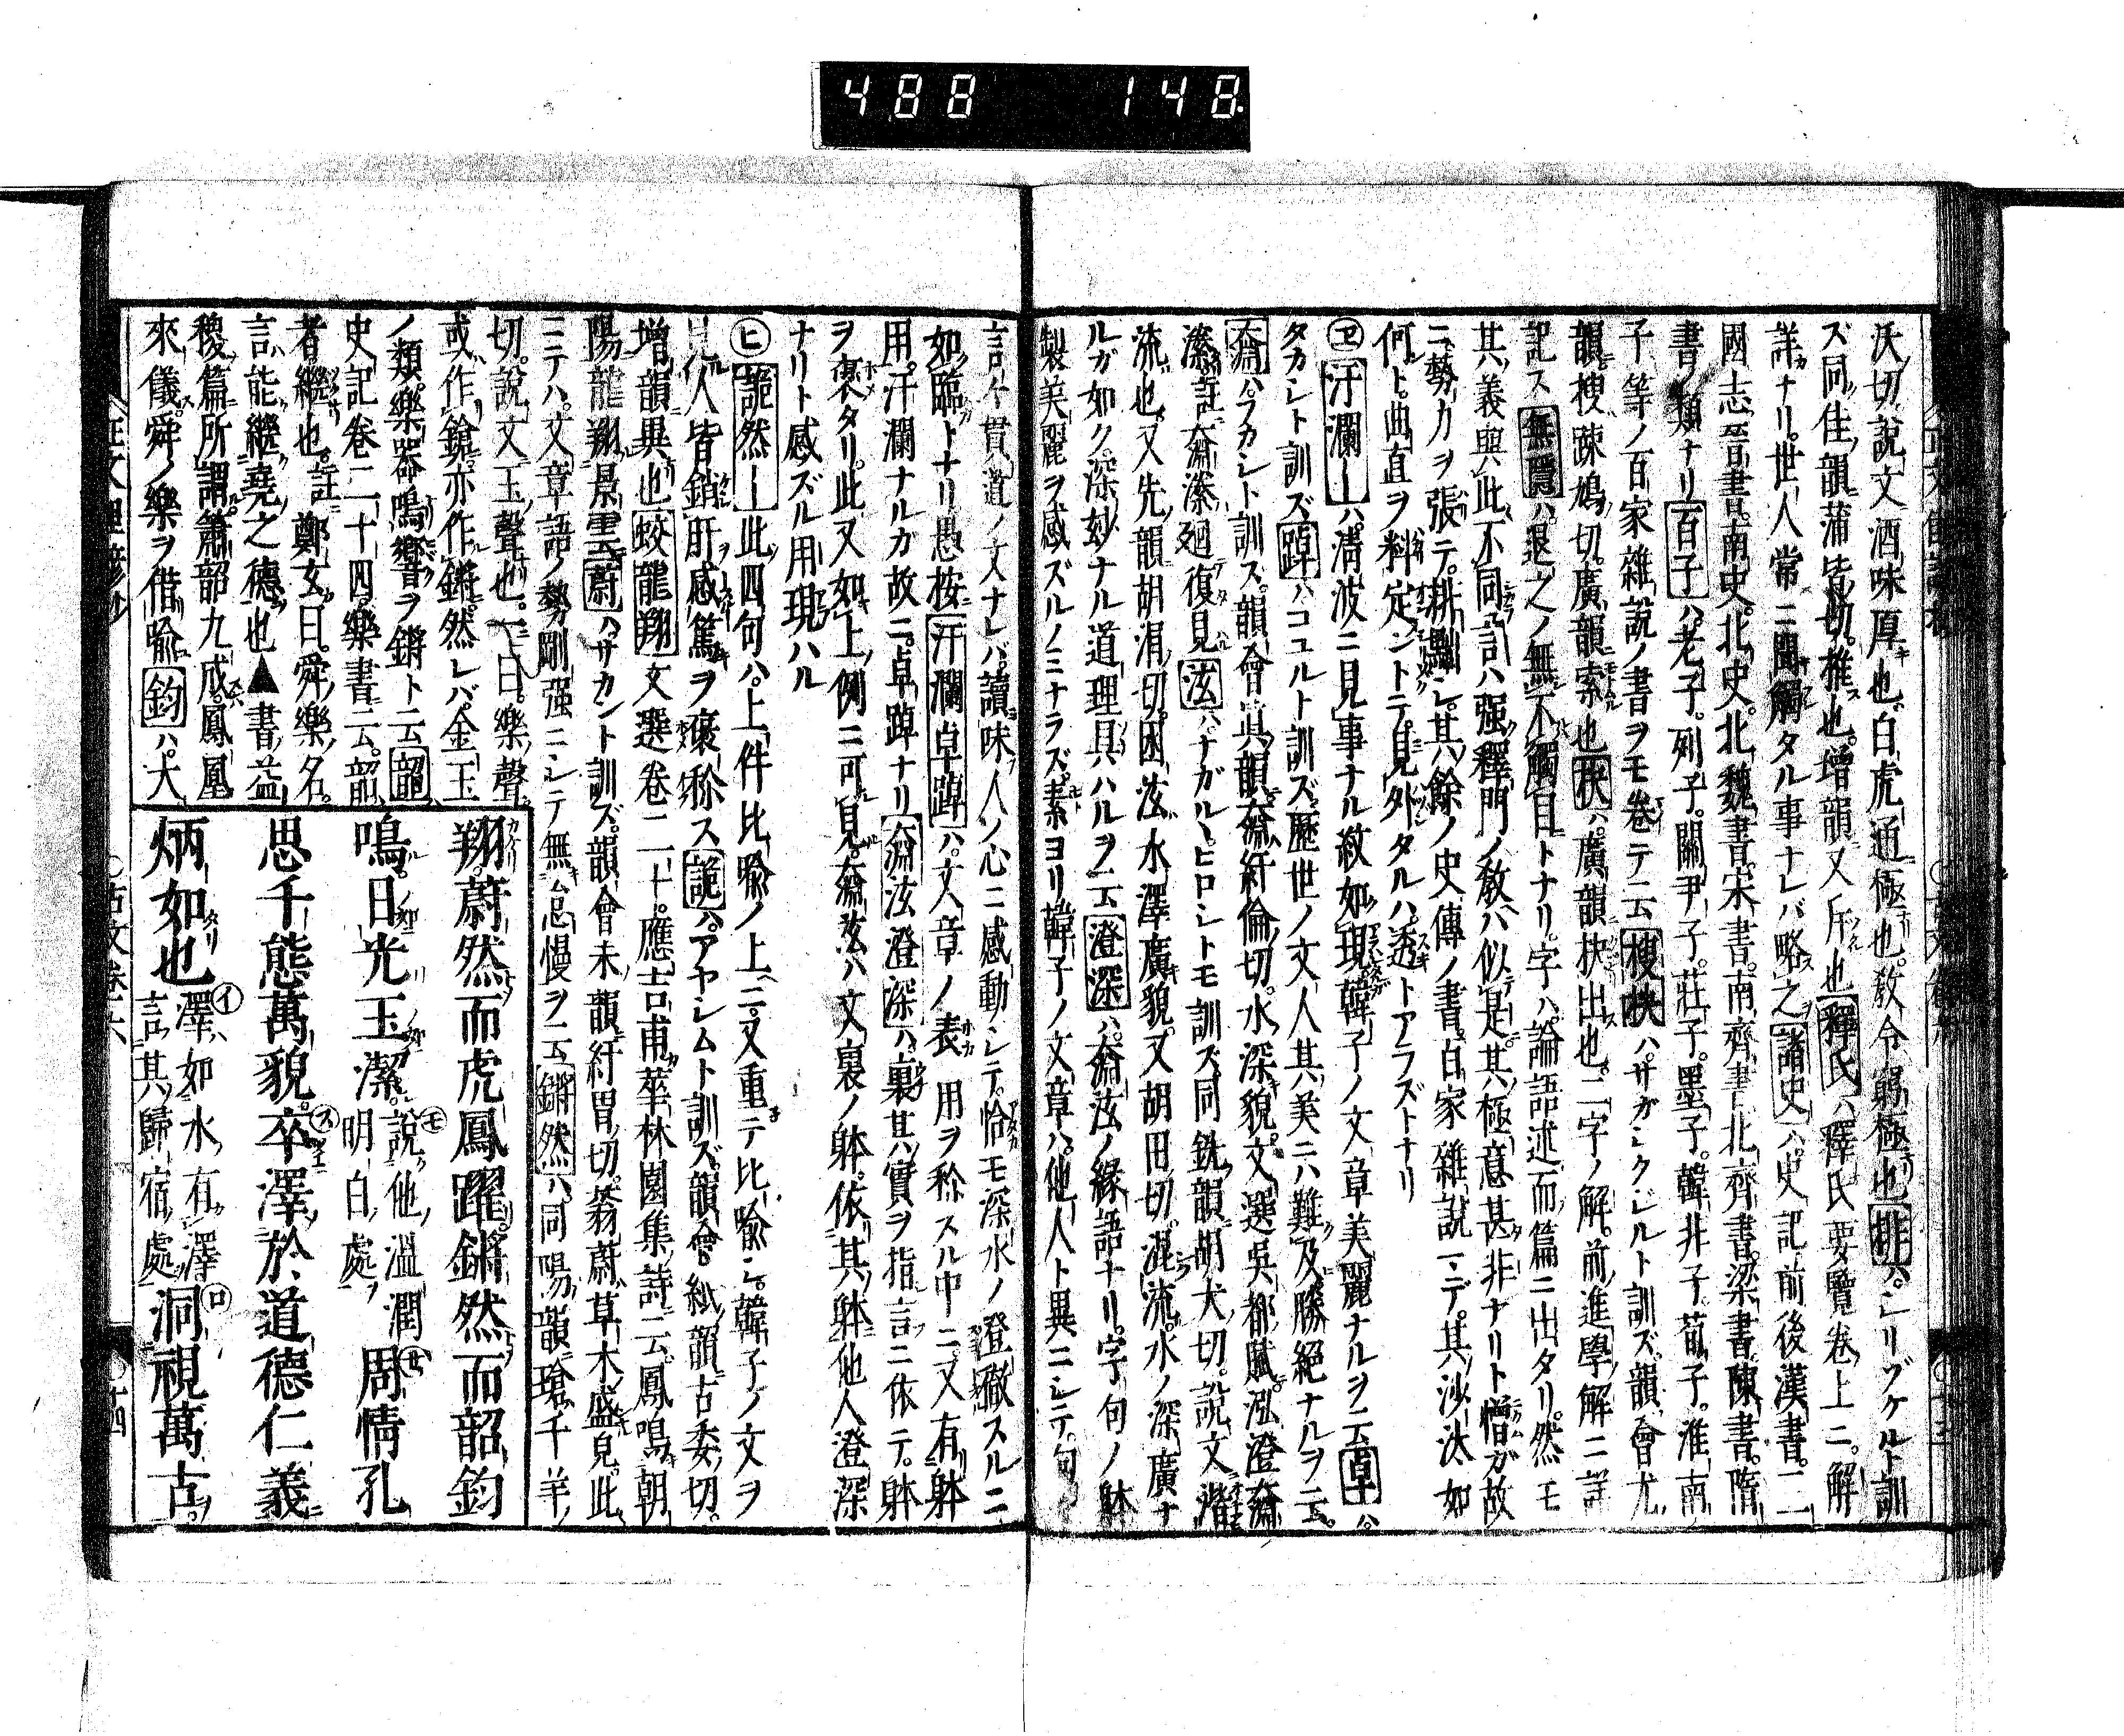 488 148
沃切説文酒味厚也白虎通極也教令窮極也排ハシリゾケルト訓
ズ同佳韻蒲皆切推也増韻又斥也釋氏ハ釋氏要覽卷上ニ解
詳ナリ世人常ニ聞觸タル事ナレバ略之諸史ハ史記前後漢書二
國志晉書南史北史北魏書宋書南齊書北齊書梁書陳書隋
書ノ類ナリ百子ハ老子列子關尹子莊子墨子韓非子荀子淮南
子等ノ百家雜説ノ書ヲモ卷テ云捜抉ハサガシクジルト訓ズ韻會尤
韻捜踈鳩切廣韻索也抉ハ廣韻抉出也二字ノ解前進學解ニ詳
記ス無隱ハ退之ノ無不觸目トナリ字ハ論語述而篇ニ出タリ然モ
其義與此不同言ハ强釋門ノ教ハ似是其極意甚非ナリト憎ガ故
ニ勢力ヲ張テ耕㔀シ其餘ノ史傳ノ書百家雜説マデ其沙汰如
何ト曲直ヲ料定ントテ見外タルハ透トアラズトナリ
ヱ汗瀾ーハ清波ニ見事ナル紋如現韓子ノ文章美麗ナルヲ云卓ハ
タカシト訓ズ踔ハコユルト訓ズ歷世ノ文人其美ニハ難及勝絶ナルヲ云
奫ハフカシト訓ス韻會眞韻奫紆倫切水深貌文選呉都賦泓澄奫
潫註奫潫廻復見泫ハナガルヒロシトモ訓ズ同銑韻胡犬切説文濳
流也又先韻胡涓切困泫水澤廣貌又胡田切混流水ノ深廣ナ
ルガ如ク深妙ナル道理具ハルヲ云澄深ハ奫泫ノ緣語ナリ字句ノ躰
製美麗ヲ感ズルノミナラズ素ヨリ韓子ノ文章ハ他人ト異ニシテ句
言々貫道ノ文ナレバ讀味人ノ心ニ感動シテ恰モ深水ノ澄徹スルニ
如臨トナリ愚按汗瀾卓踔ハ文章ノ表用ヲ称スル中ニ又有躰
用汗瀾ナルガ故ニ卓踔ナリ奫泫澄深ハ裏其實ヲ指言ニ依テ躰
ヲ褒タリ此又如上例ニ可見奫泫ハ文裏ノ躰依其躰他人澄深
ナリト感ズル用現ハル
ヒ詭然ー此四句ハ上件比喩ノ上ニ又重テ比喩シ韓子ノ文ヲ
見人皆銷肝感篤ヲ褒称ス詭ハアヤシムト訓ズ韻會紙韻古委切
增韻異也蛟龍翔文選卷二十應吉甫華林園集詩云鳳鳴朝
陽龍翔景雲蔚ハサカント訓ズ韻會未韻紆胃切蓊蔚草木盛皃此
ニテハ文章語ノ勢剛强ニシテ無怠慢ヲ云鏘然ハ同陽韻瑲千羊
切説文玉聲也一曰樂聲
或作鎗亦作鏘然レバ金玉
ノ類樂器鳴響ヲ鏘ト云韶
史記卷二十四樂書云韶
者繼也註鄭玄曰舜樂名
言能繼堯之德也▲書益
稷篇所謂簫韶九成鳳凰
來儀舜ノ樂ヲ借喩鈞ハ大
翔蔚然而虎鳳躍鏘然而韶鈞
鳴日光玉潔モ説他溫潤明白處サ周情孔
思千態萬貌ス卒澤於道德仁義
炳如也イ澤ハ如水有澤言其歸宿處ロ洞視萬古